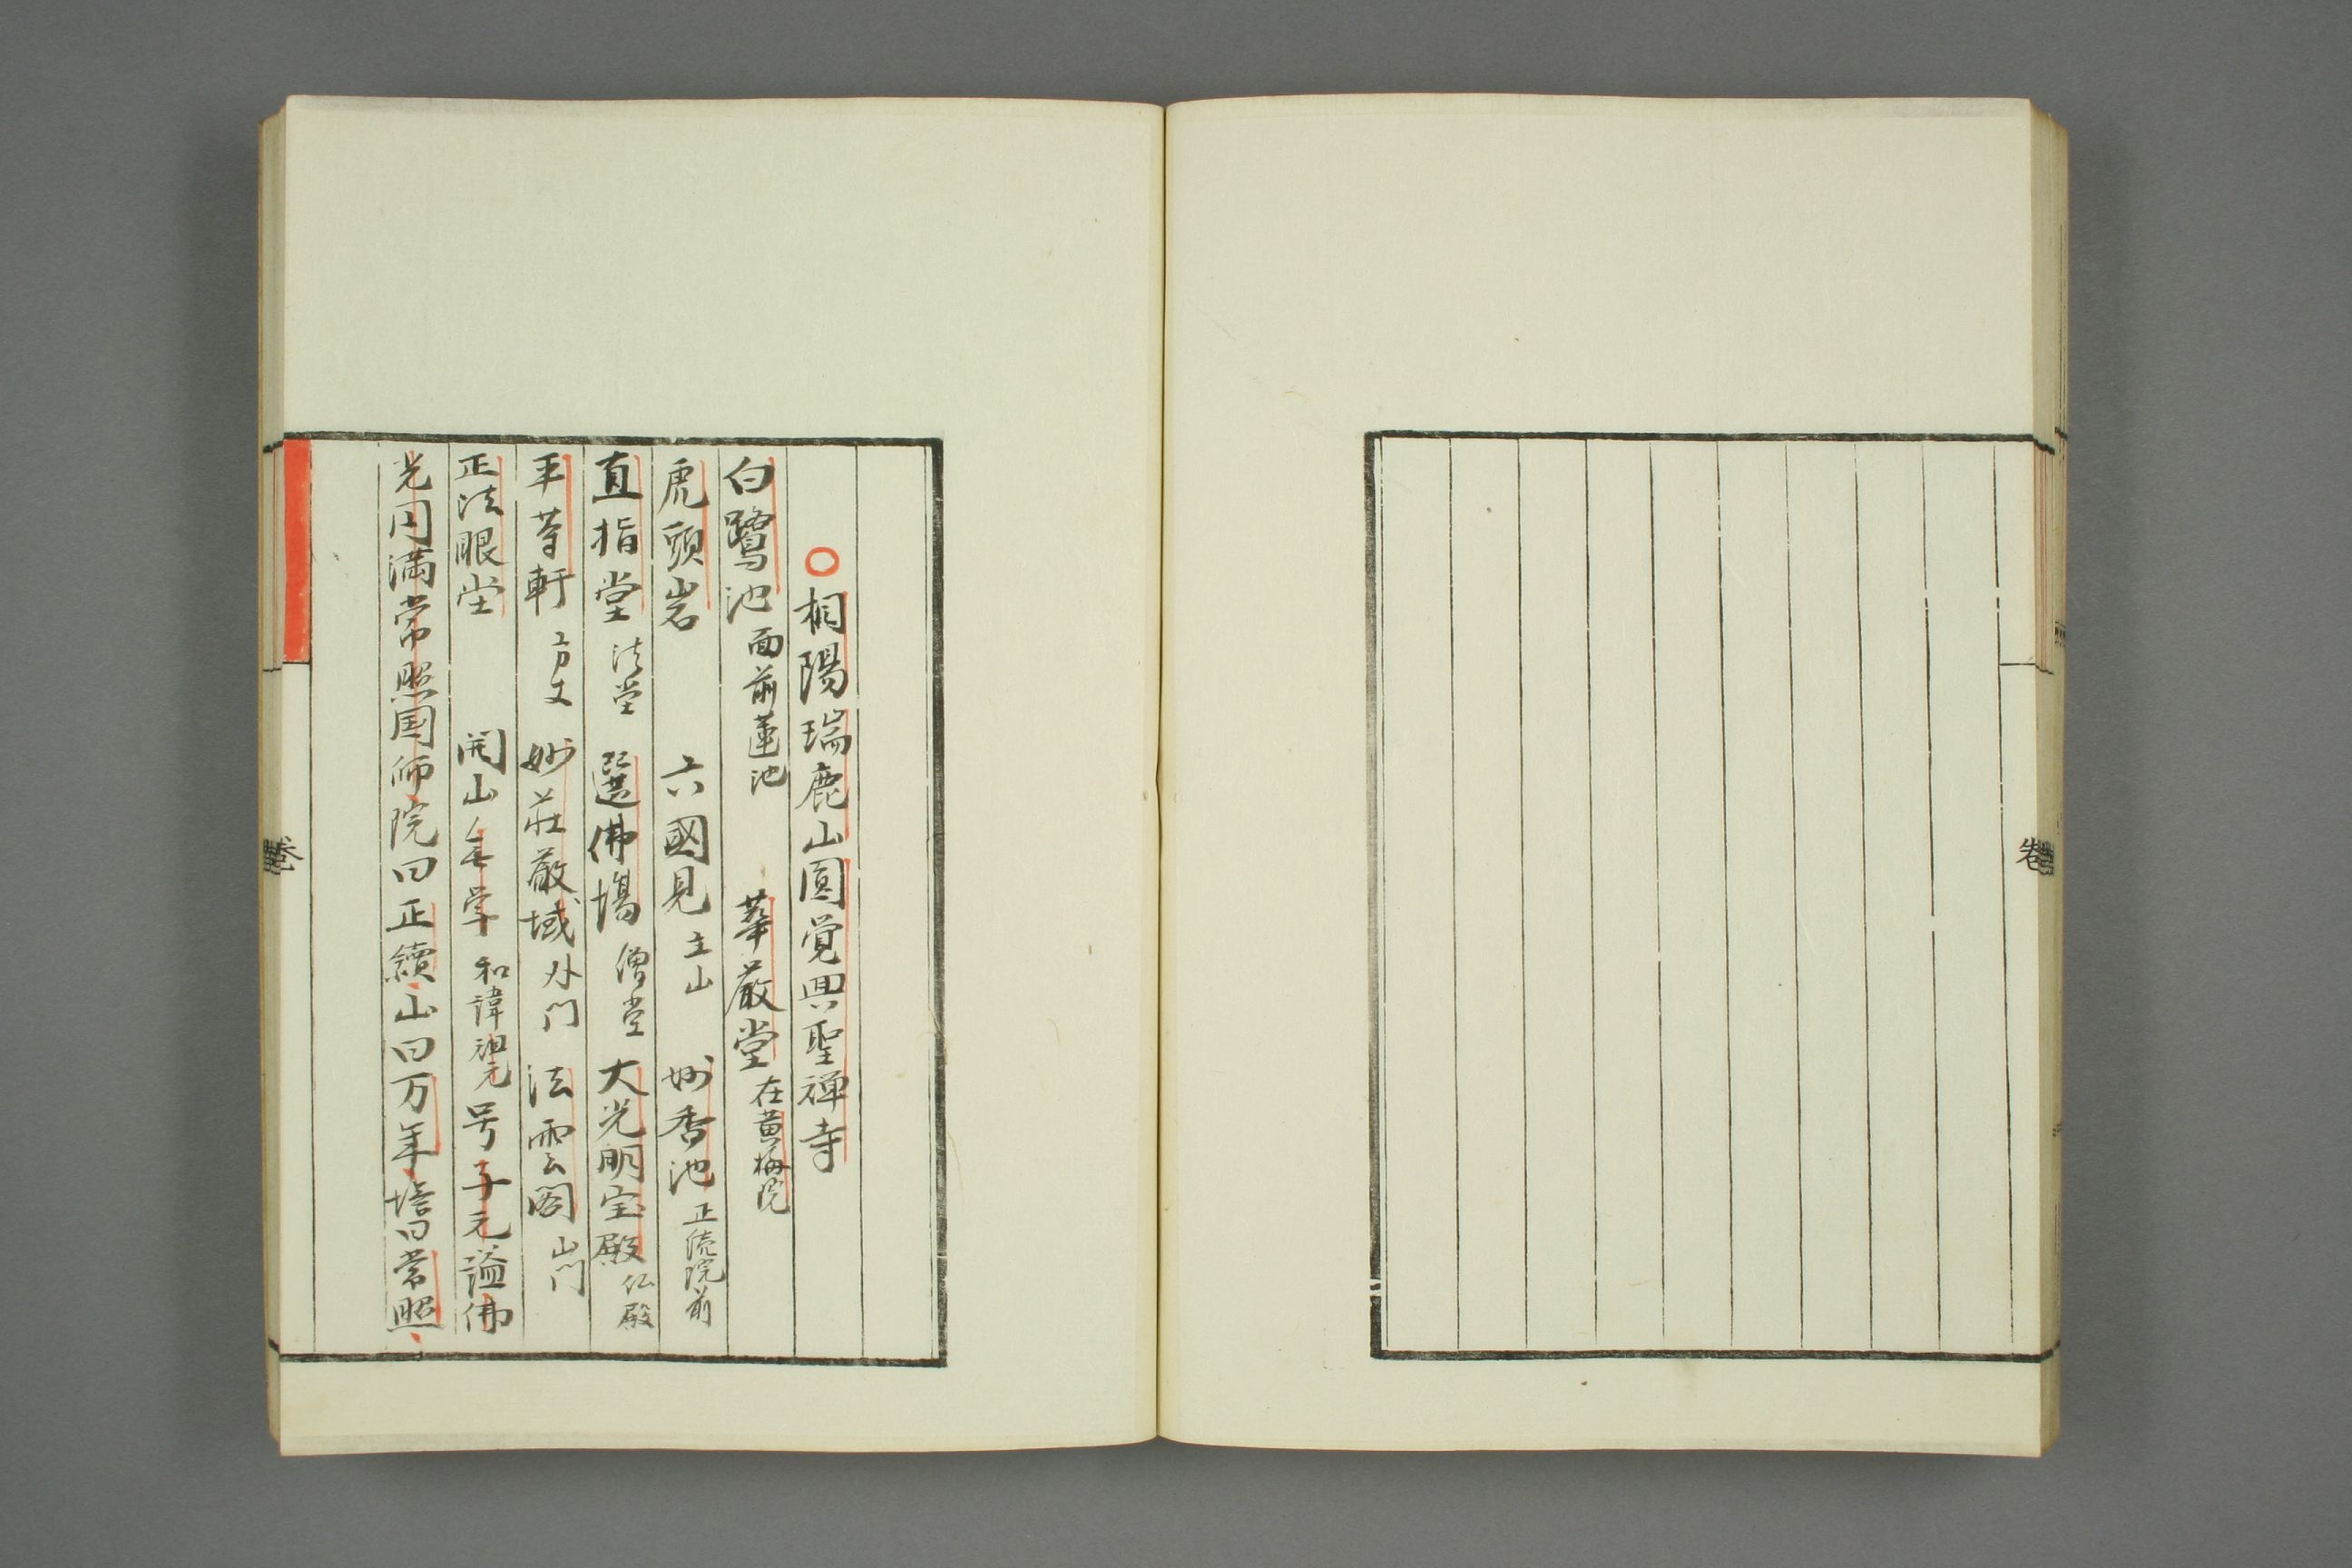 卷
○相陽瑞鹿山圓覚興聖禅寺
白鷺池 面前蓮池 華厳堂 在黄梅院
虎頭岩 六國見 主山 妙香池 正続院前
直指堂 法堂 選佛場 僧堂 大光明宝殿 仏殿
平等軒 方丈 妙莊厳域 外门 法雲閣 山门
正法眼堂 開山 無学 和諱祖元 号子元謚佛
光円満常照国师院曰正續山曰万年塔曰常照
卷